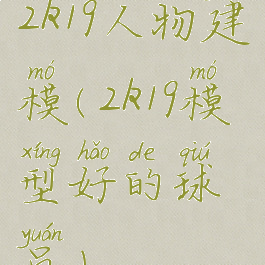 2K19人物建
mó mó
模(2K19模
xíng hǎo de qiú
型好的球
yuán
员)